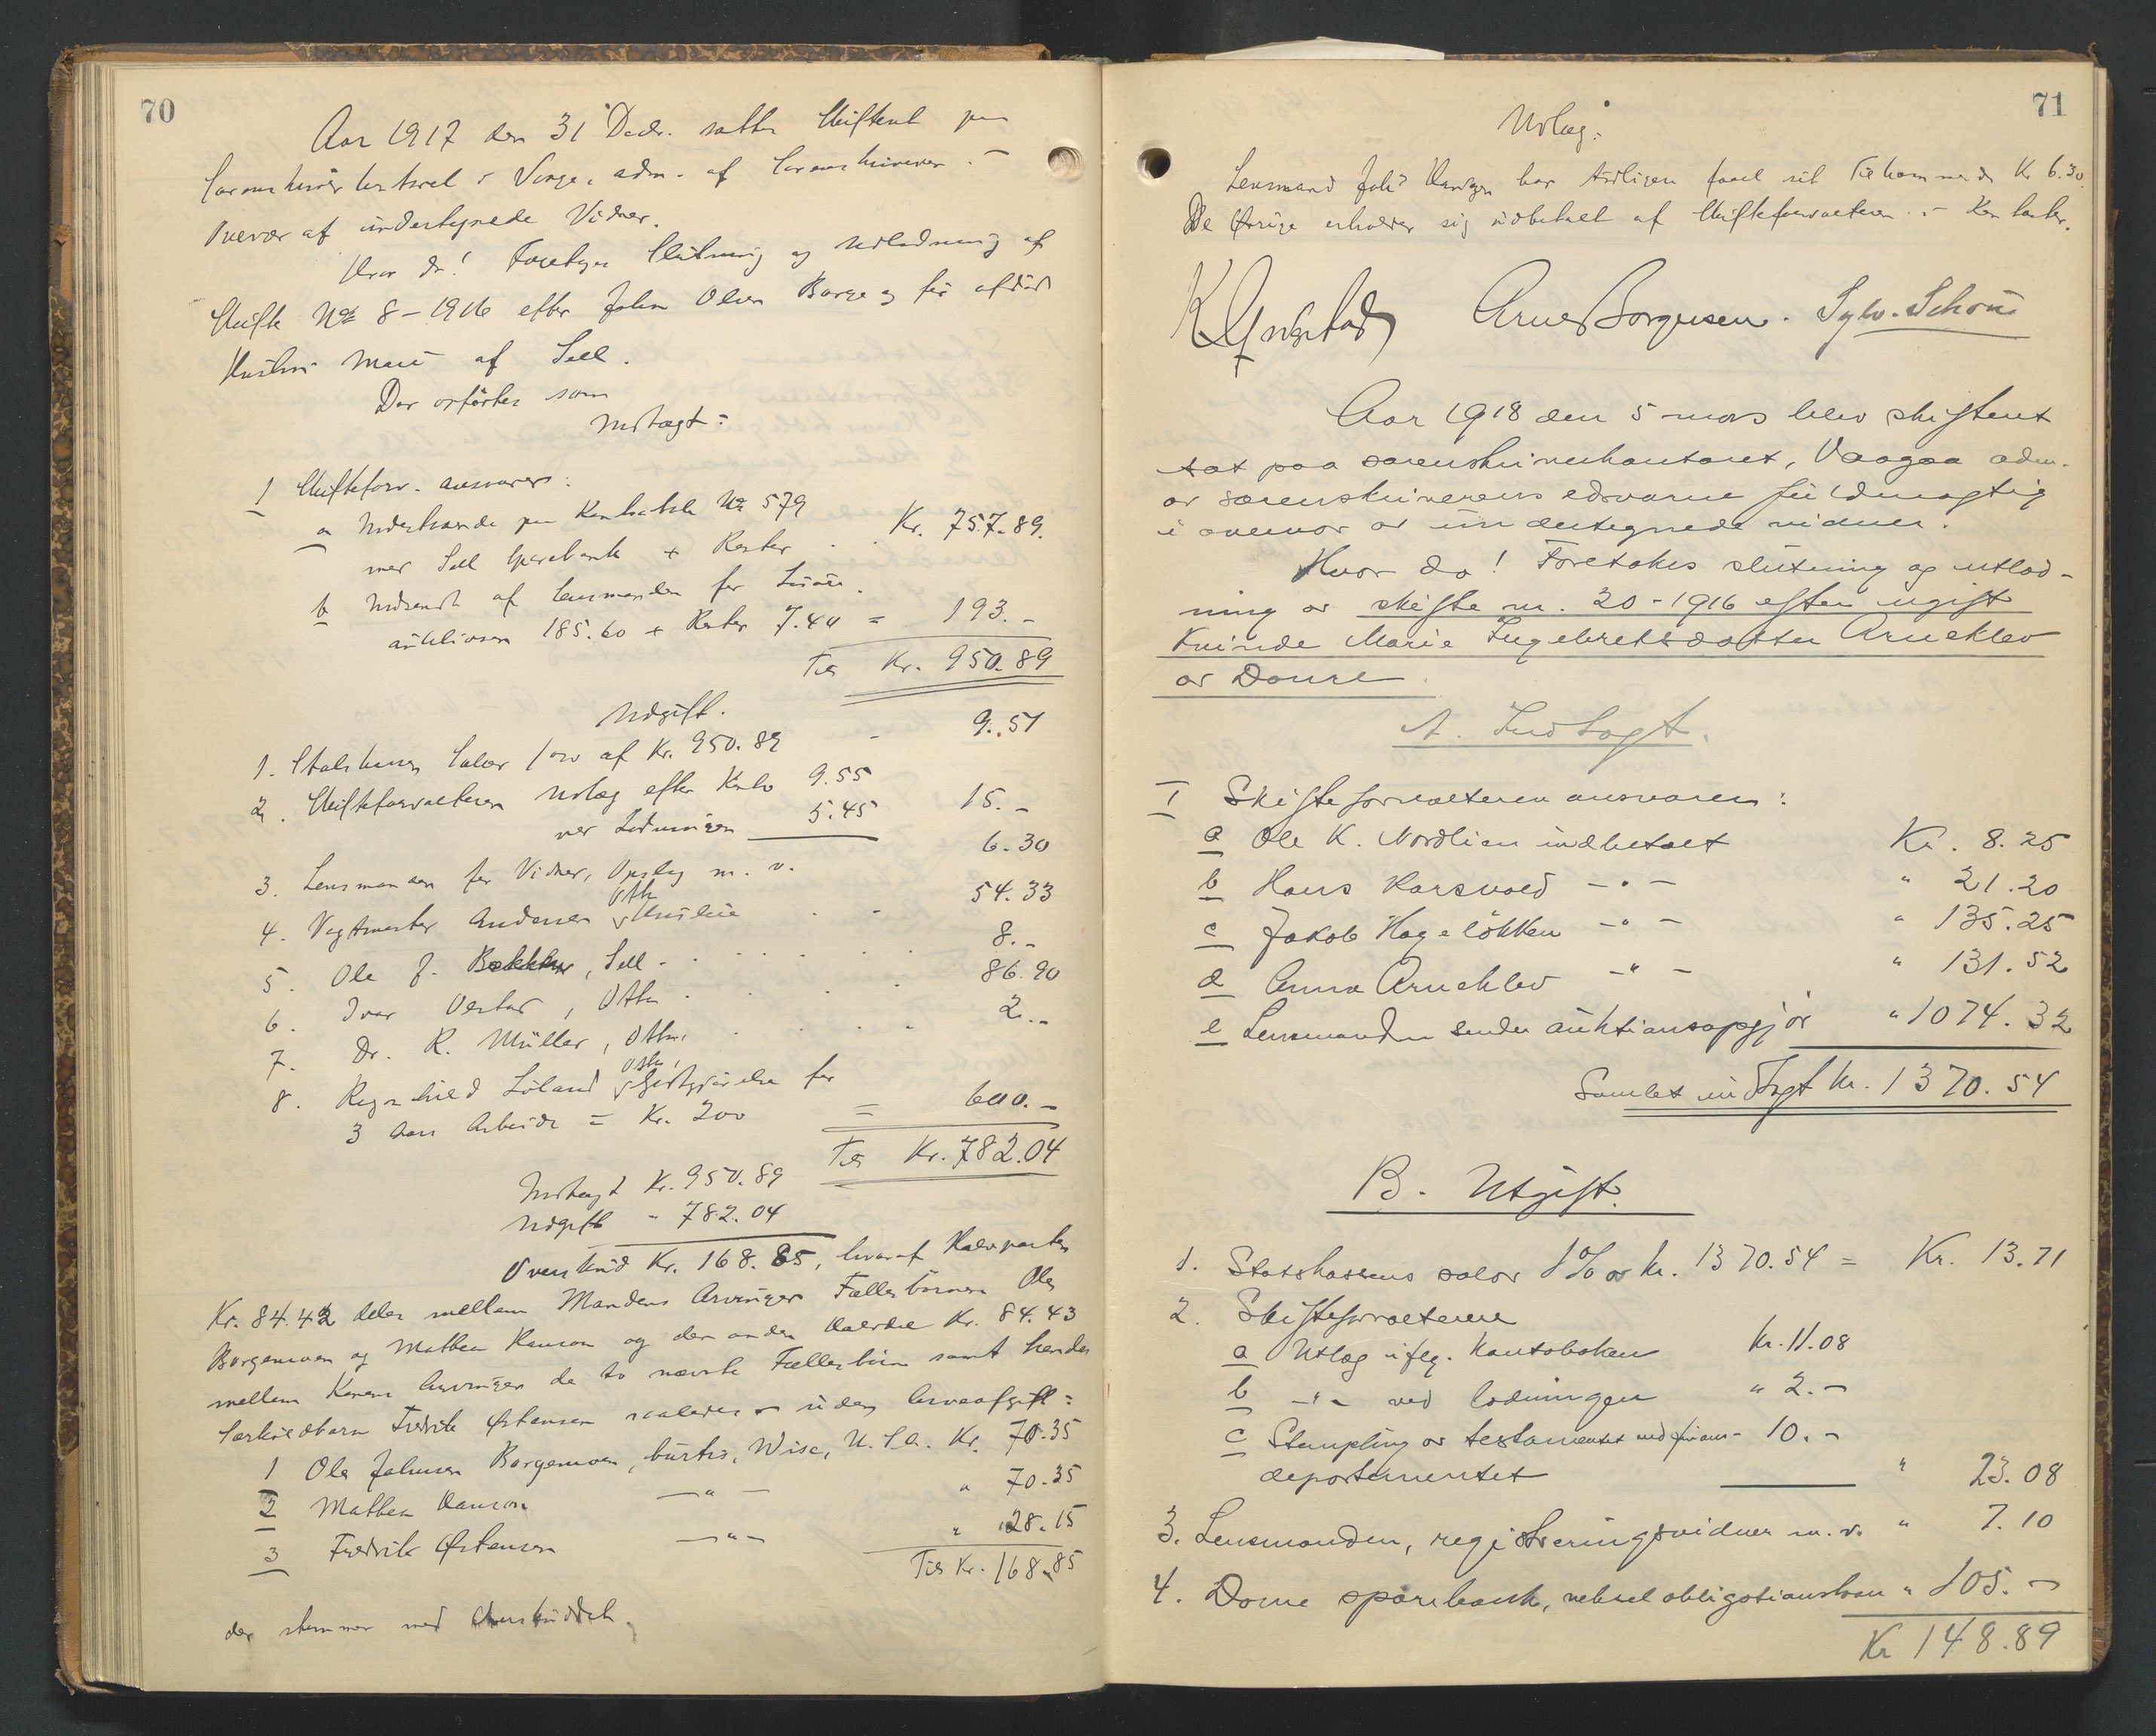 70
Aar 1917 den 31 Decbr. sattes Skifteret paa
Sorenskriverkontoret i Vaage, adm. af Sorenskriveren i
Overvær af undertegnede Vidner.
Hvor da! Foretoges Slutning og Udlodning af
Skifte No 8 - 1916 efter Johan Olsen Borge og før afdøde
Hustru Mari af Sell.
Der opførtes som
Indtægt:
1 Skifteforv. ansvarer:
a Indestaaende paa Kontrabok No 579
med Sell Sparebank + Renter Kr. 757.89.
b Indsendt af Lensmanden for Løsøre
auktionen 185.60 + Renter 7.40 = 193.-
Tils Kr. 950.89
Udgift.
1. Statskassens Salær 1% af Kr. 950.89 - 9.51
2. Skifteforvalteren Udlæg efter Konto 9.55
ved Lodningen 5.45 15.-
3. Lensmanden for Vidner, Opslag m. v. 6.30
4. Vagtmester Andersen Otta 54.33
5. Ole J. Bakken, Sell 8.-
6. Ivar , Otta 86.90
7. Dr. R. Müller, Otta, 2.-
8. Ragnhild Løland Otta, Godtgjørelse for
3 Aars Arbeide = Kr. 200 = 600.-
Tils Kr. 782.04
Indtægt Kr. 950.89
Udgift " 782.04
Overskud Kr. 168.85, hvoraf Halvparten
Kr. 84.42 deles mellem Mandens Arvinger Fællesbørnene Ole
Borgemoen og Mathea Hanson og den anden Halvdel Kr. 84.43
mellem Konens Arvinger de to nævnte Fællesbørn samt hendes
Særkuldbarn Fredrik Østensen saaledes uden Arveafgift:
1 Ole Johnsen Borgemoen, , Wisc, U.S.A. Kr. 70.35
2 Mathea Hanson - " - " 70.35
3 Fredrik Østensen - " - " 28.15
Tils Kr. 168.85
der stemmer med Overskuddet.
71
Udlæg:
Lensmand Johs Hardgen har tidligere faaet sit Tilkommende Kr 6.30.
De Øvrige erholder sig udbetalt af Skifteforvalteren i Kontanter.
Arne Borgersen. Sylv. Schou
Aar 1918 den 5 mars blev skifteret
sat paa sorenskriverkontoret, Vaagaa adm.
av sorenskriverens edsvorne fuldmægtig
i overvær av undertegnede vidner.
Hvor da! Foretokes slutning og utlod-
ning av skifte nr. 20-1916 efter ugift
Kvinde Marie Ingebretsdatter Arneklev
av Dovre
A. Indtægt.
I Skifteforvalteren ansvarer:
a Ole K. Nordlien indbetalt Kr. 8.25
b Hans Korsvold - " - " 21.20
c Jakob Hageløkken - " - " 135.25
d Anna Arneklev - " - " 131.52
e Lensmanden under auktionsopgjør " 1074.32
Samlet indtægt kr. 1370.54
B. Utgift.
1. Statskassens salær 1% av kr. 1370.54 = Kr. 13.71
2. Skifteforvalteren
a Utlæg iflg. kontoboken kr. 11.08
b - " - ved lodningen " 2.-
c Stempling av testamentet ved finans- 10.-
departementet " 23.08
3. Lensmanden, registreringsvidner m.v. " 7.10
4. Dovre sparebank, veksel obligationslaan " 105.-
Kr 148.89